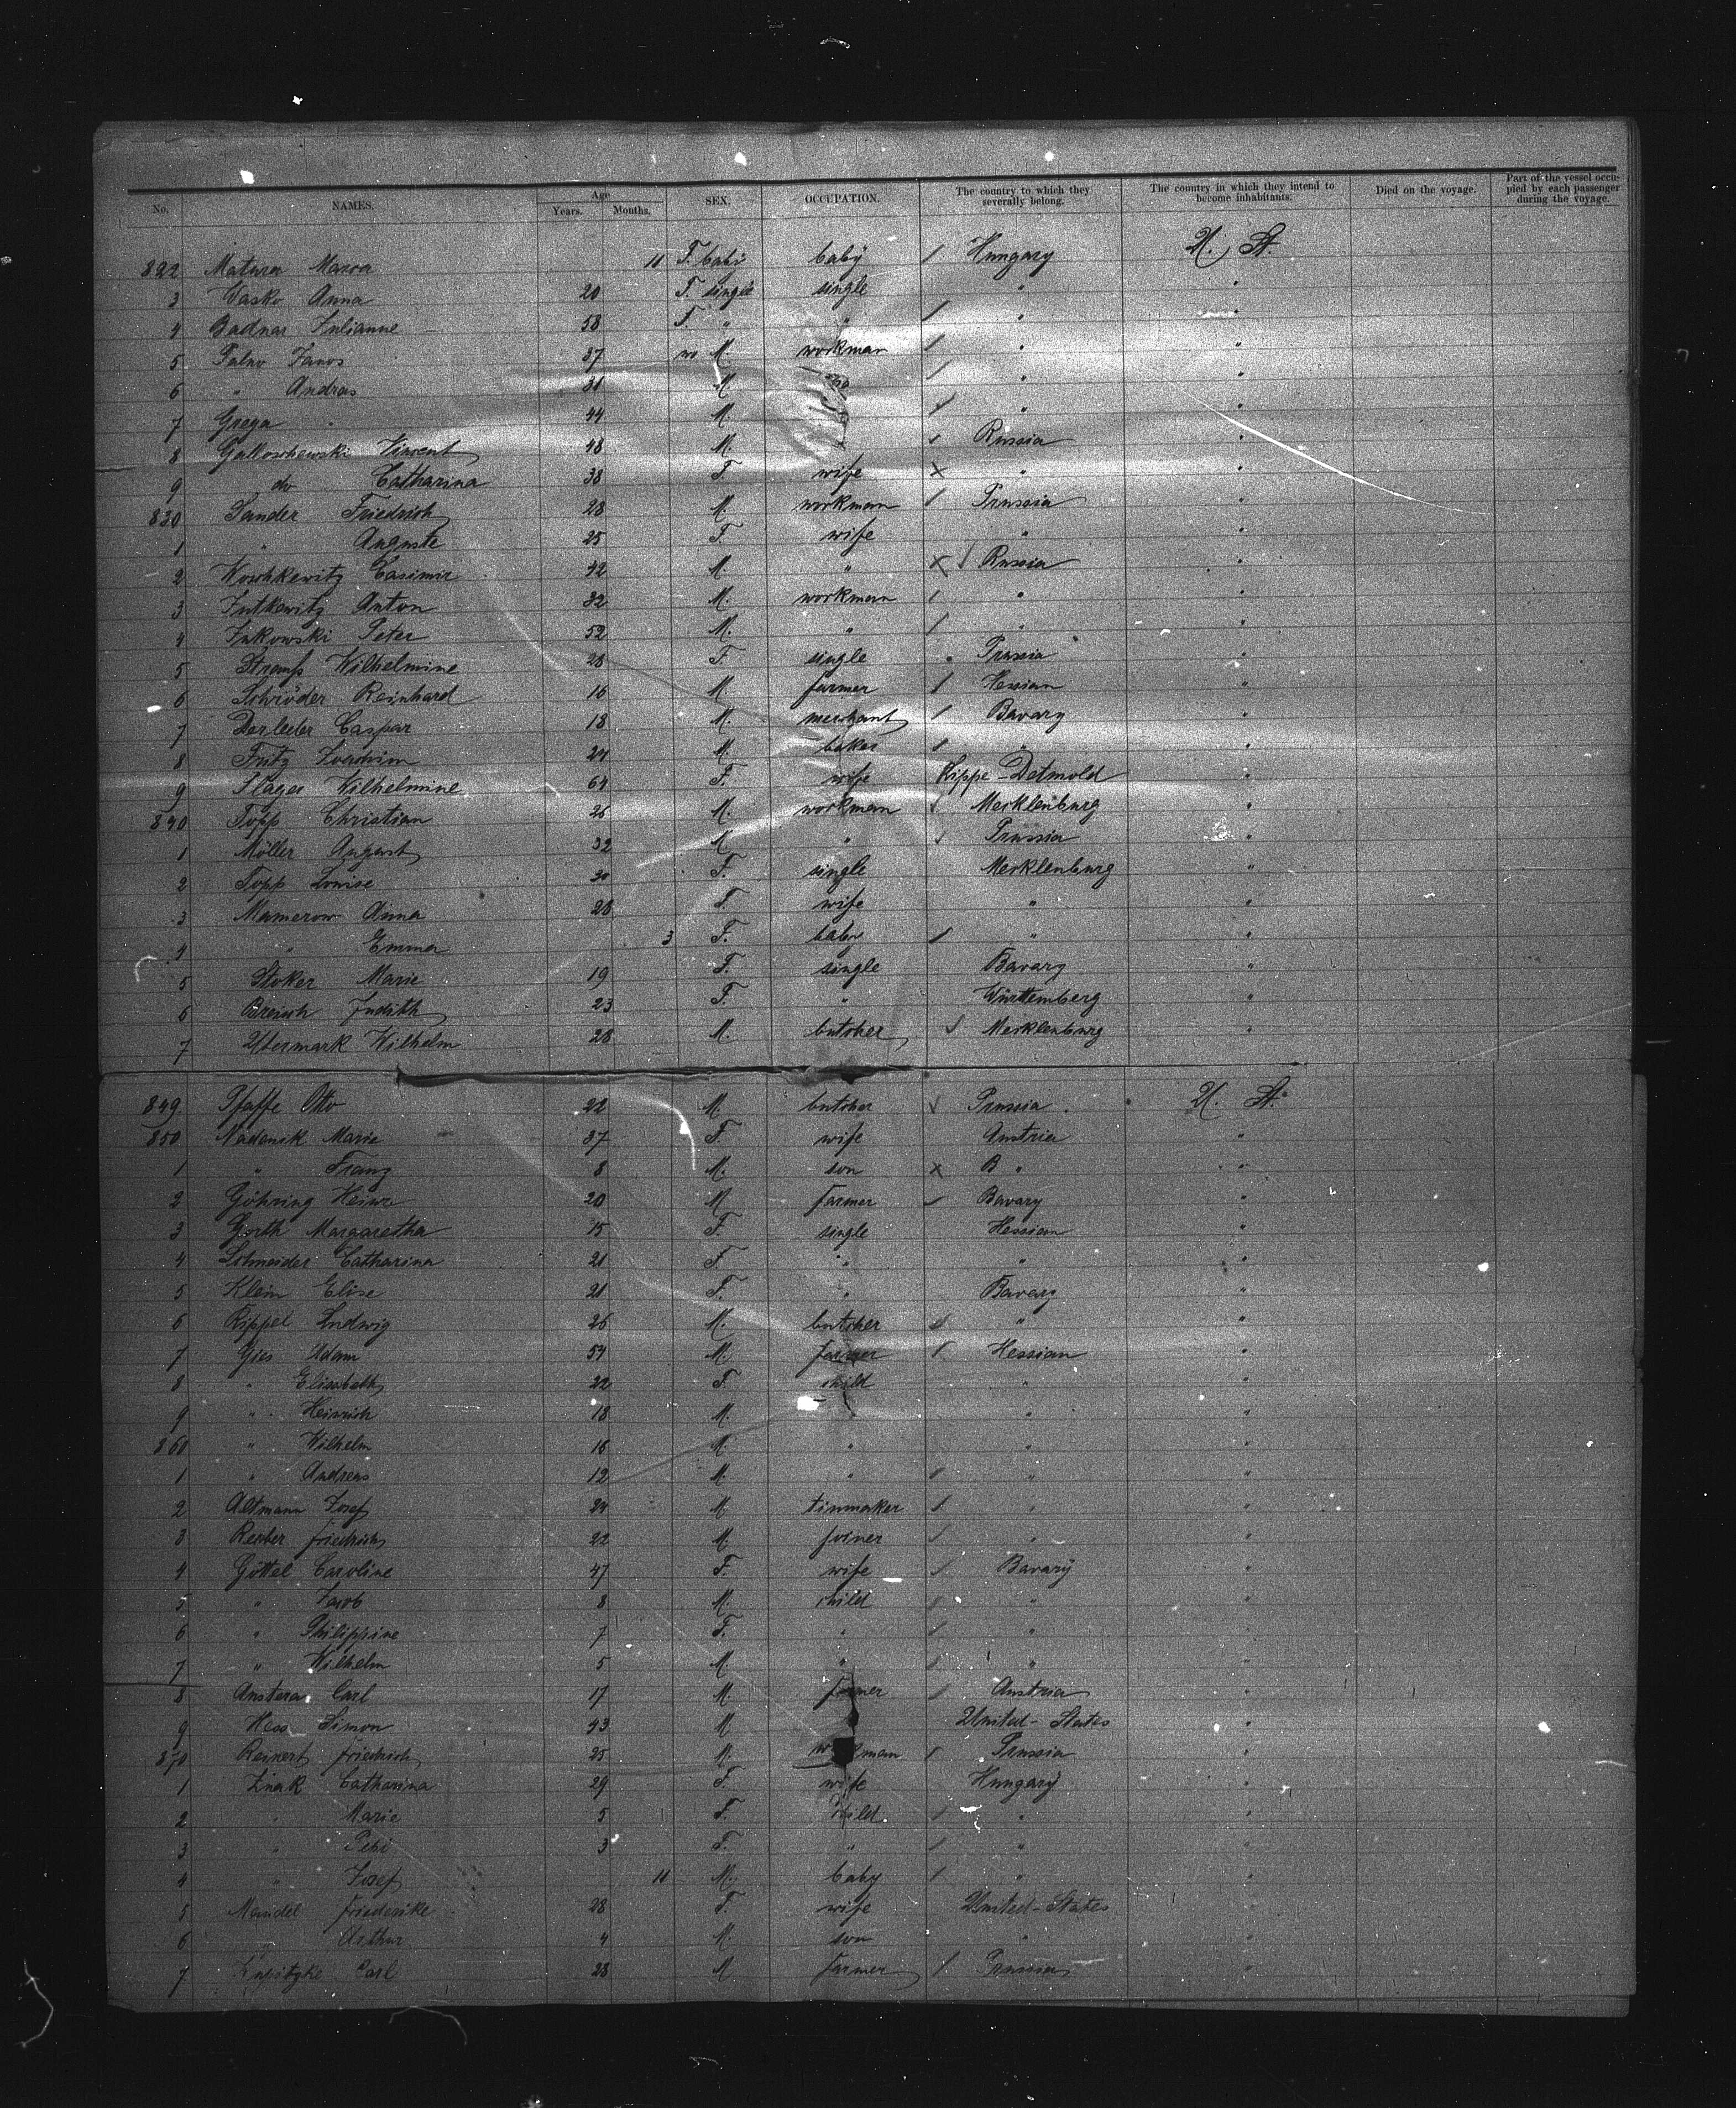 No. NAMES. Age Years. Months. SEX. OCCUPATION. The country to which they severally belong. The country in which they intend to become inhabitants. Died on the voyage. Part of the vessel occupied by each passenger during the voyage.
822 Matura Marra 11 F. baby Hungary U. St.
3 Wasko Anna 20 F. single single " "
4 Badnar Julianne 58 F. " " " "
5 Palno Janos 37 M. workman " "
6 " Andras 31 M. " "
7 Grega " 44 M. " "
8 Galloschewski Vincent 48 M. " Russia "
9 do Catharina 38 F. wife " "
830 Sander Friedrich 28 M. workman Prussia "
1 " Auguste 25 F. wife " "
2 Woschkewitz Casimir 42 M. " Russia "
3 Jutkewitz Anton 32 M. workman " "
4 Jukowski Peter 52 M. " " "
5 Strauß Wilhelmine 28 F. single Prussia "
6 Schröder Reinhard 16 M. farmer Hessian "
7 Derleder Caspar 18 M. merchant Bavary "
8 Fritz Joachim 24 M. baker " "
9 Plager Wilhelmine 64 F. wife Lippe-Detmold "
840 Topp Christian 26 M. workman Mecklenburg "
1 Möller August 32 M. " Prussia "
2 Topp Louise 30 F. single Mecklenburg "
3 Mamerow Anna 28 F. wife " "
4 " Emma 3 F. baby " "
5 Stoker Marie 19 F. single Bavary "
6 Breisch Judith 23 F. " Württemberg "
7 Utermark Wilhelm 28 M. butcher Mecklenburg "
849 Pfaffe Otto 22 M. butcher Prussia U. St.
850 Nadenik Marie 37 F. wife Austria "
1 " Franz 8 M. son B " "
2 Göhring Heinr 20 M. farmer Bavary "
3 Gorth Margaretha 15 F. single Hessian "
4 Schneider Catharina 21 F. " " "
5 Klein Elise 21 F. " Bavary "
6 Rippel Ludwig 26 M. butcher " "
7 Gies Adam 54 M. farmer Hessian "
8 " Elisabeth 22 F. child " "
9 " Heinrich 18 M. " " "
860 " Wilhelm 16 M. " " "
1 " Andreas 12 M. " " "
2 Altmann Josef 24 M. tinmaker " "
3 Reeber Friedrich 22 M. joiner " "
4 Göttel Caroline 47 F. wife Bavary "
5 " Jacob 8 M. child " "
6 " Philippine 7 F. " " "
7 " Wilhelm 5 M. " " "
8 Anstera Carl 17 M. farmer Austria "
9 Hess Simon 43 M United-States "
870 Reinert Friedrich 25 M. workman Prussia "
1 Zinak Catharina 29 F. wife Hungary "
2 " Marie 5 F. child " "
3 " Pebi 3 F. " " "
4 " Josef 11 M. baby " "
5 Mandel Friederike 28 F. wife United-States "
6 " Arthur 4 M. son " "
7 Carl 28 M farmer Prussia "